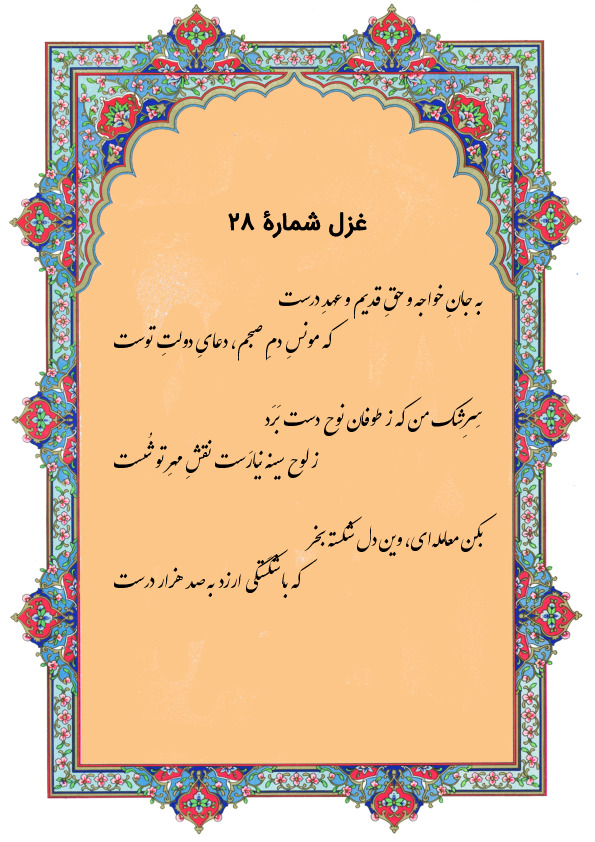 غزل شمارهٔ ۲۸
به جانِ خواجه و حقِ قدیم و عهدِ درست
که مونسِ دمِ صبحم، دعایِ دولتِ توست
سِرِشکِ من که ز طوفان نوح دست بَرَد
ز لوح سینه نیارَست نقشِ مهرِ تو شُست
بکن معامله‌ای، وین دل شکسته بخر
که با شکستگی ارزد به صد هزار درست